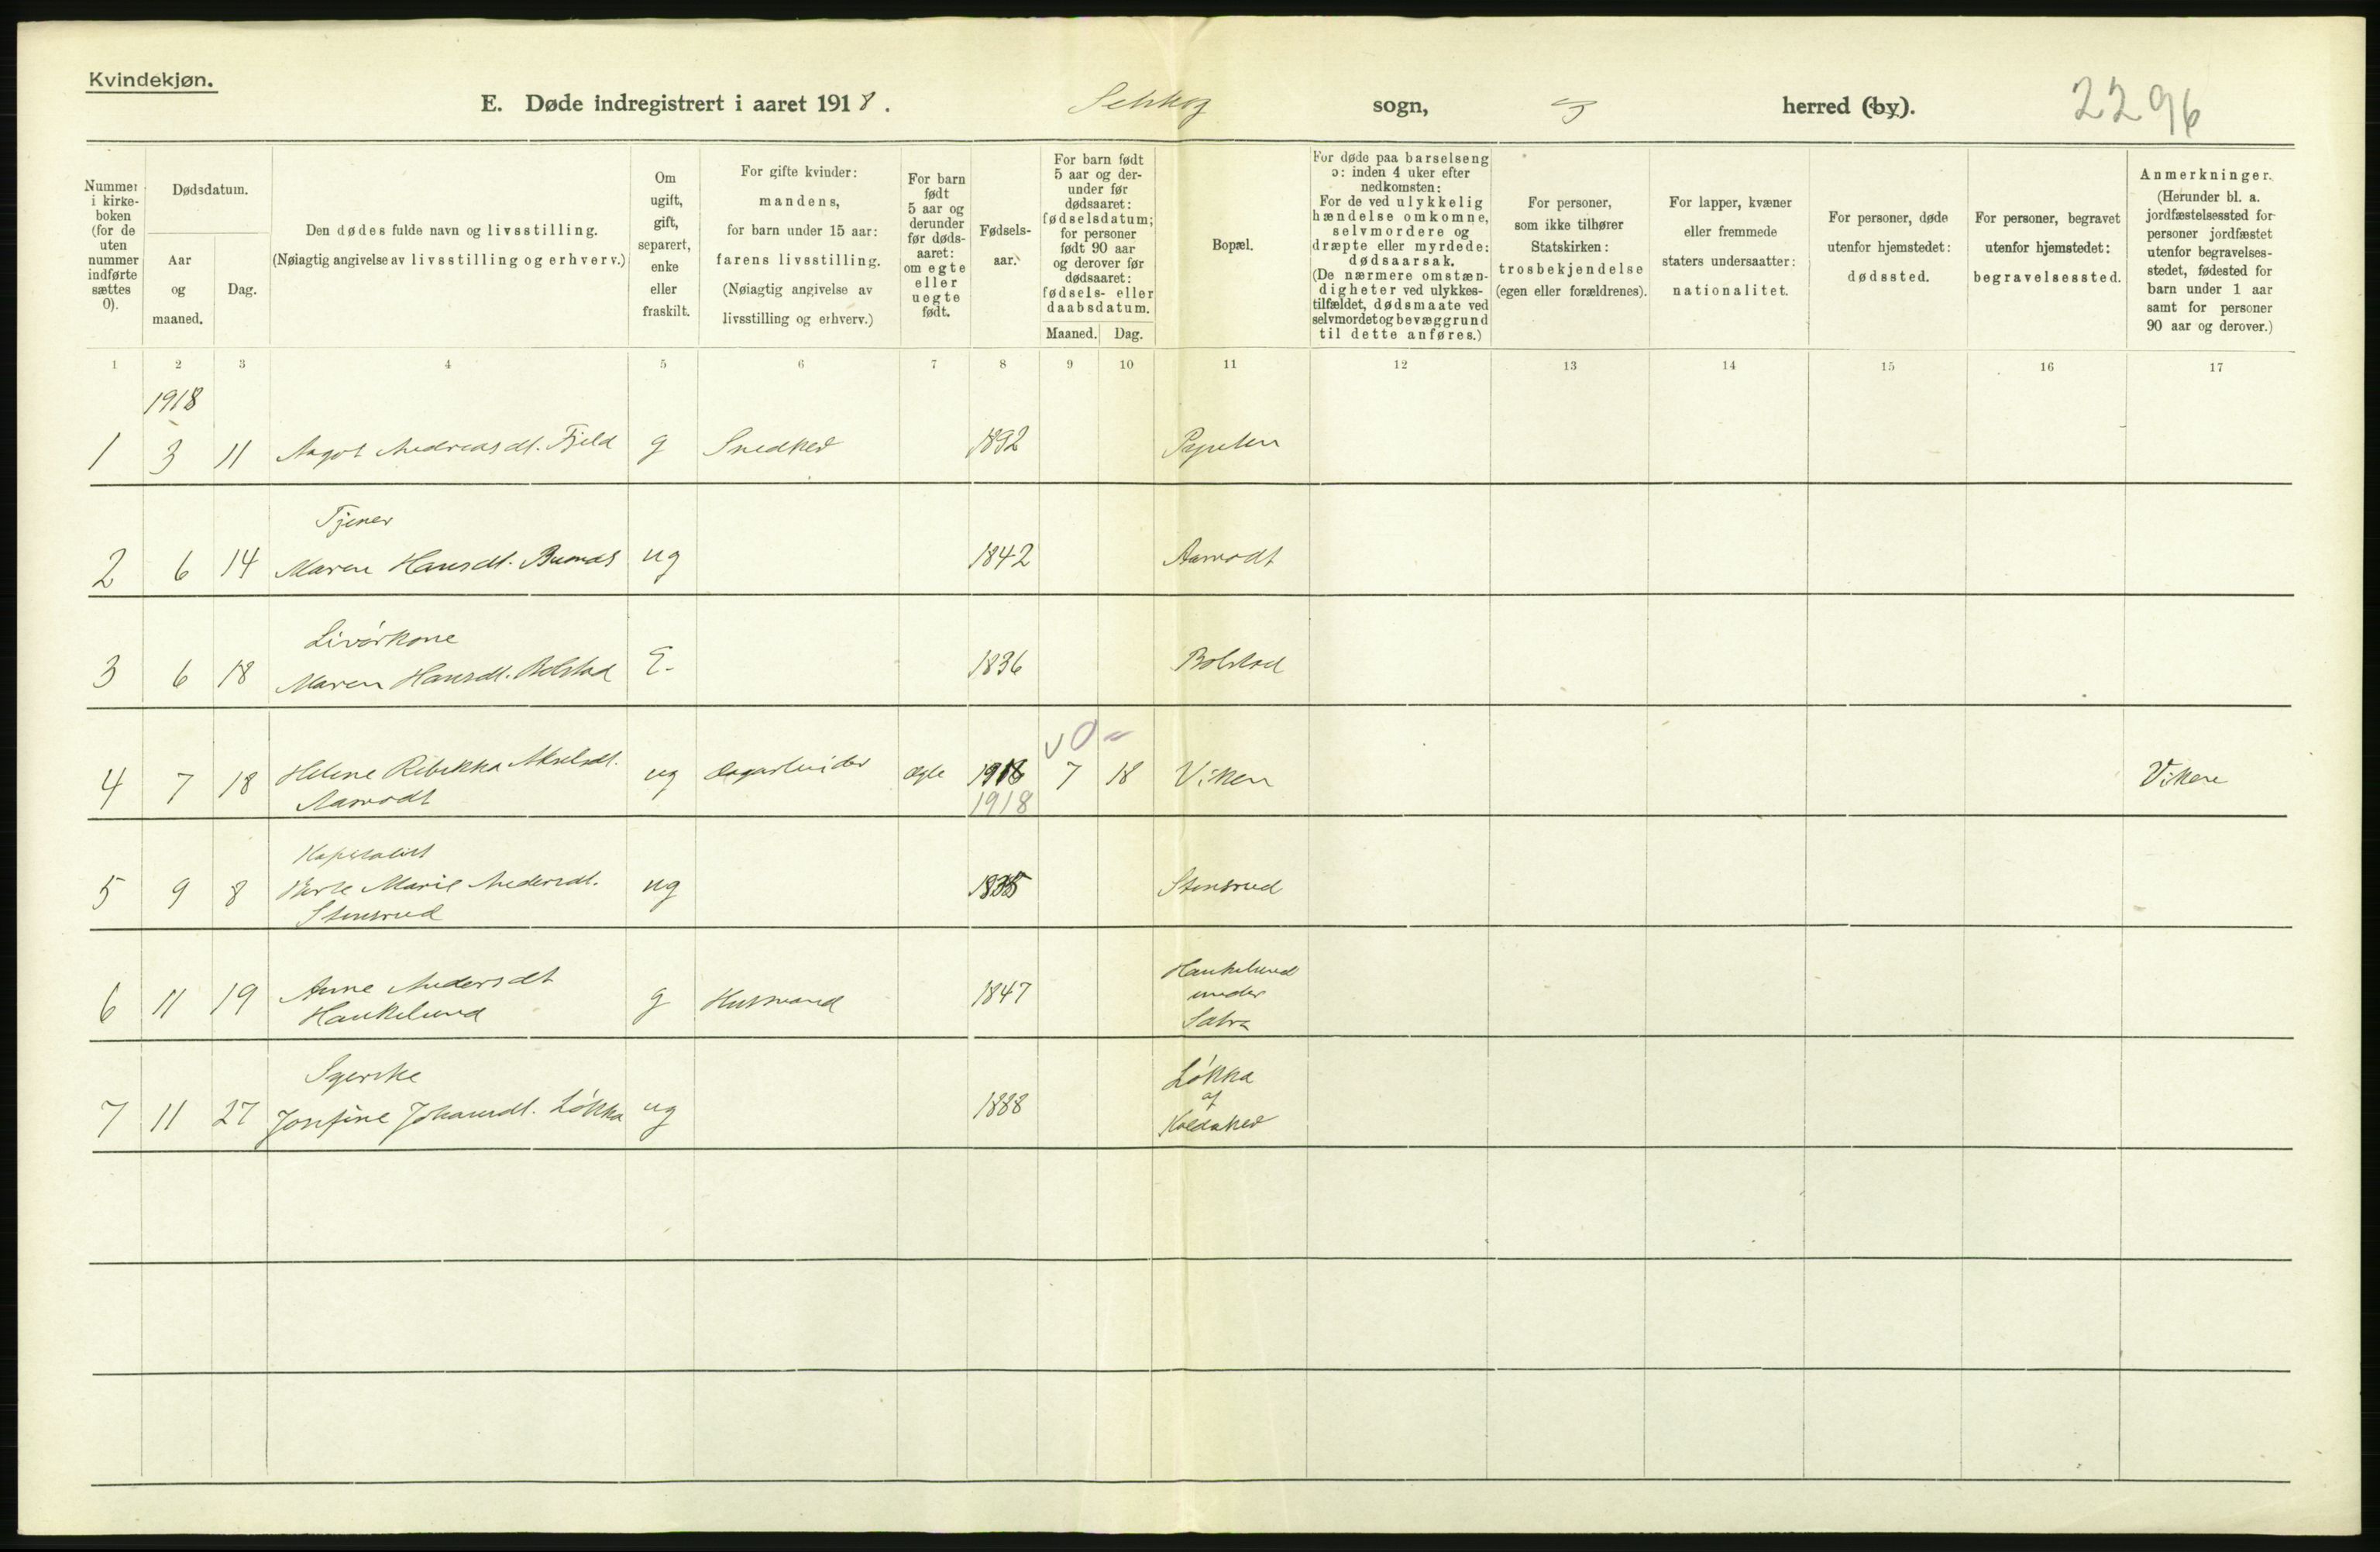 Kvindekjøn.
E. Døde indregistrert i aaret 1918. Setskog sogn, herred (by). 2296
Nummer i kirkeboken (for de uten nummer indførte sættes 0).
Dødsdatum.
Aar og maaned.
Dag.
Den dødes fulde navn og livsstilling.
(Nøiagtig angivelse av livsstilling og erhverv.)
Om ugift, gift, separert, enke eller fraskilt.
For gifte kvinder: mandens, for barn under 15 aar: farens livsstilling. (Nøiagtig angivelse av livsstilling og erhverv.)
For barn født 5 aar og derunder før dødsaaret: om egte eller uegte født.
Fødselsaar.
For barn født 5 aar og derunder før dødsaaret: fødselsdatum; for personer født 90 aar og derover før dødsaaret: fødsels- eller daabsdatum.
Maaned. Dag.
Bopæl.
For døde paa barselseng ɔ: inden 4 uker efter nedkomsten: For de ved ulykkelig hændelse omkomne, selvmordere og dræpte eller myrdede: dødsaarsak. (De nærmere omstændigheter ved ulykkestilfældet, dødsmaate ved selvmordet og bevæggrund til dette anføres.)
For personer, som ikke tilhører Statskirken: trosbekjendelse (egen eller forældrenes).
For lapper, kvæner eller fremmede staters undersaatter: nationalitet.
For personer, døde utenfor hjemstedet: dødssted.
For personer, begravet utenfor hjemstedet: begravelsessted.
Anmerkninger. (Herunder bl. a. jordfæstelsessted for personer jordfæstet utenfor begravelsesstedet, fødested for barn under 1 aar samt for personer 90 aar og derover.)
1 2 3 4 5 6 7 8 9 10 11 12 13 14 15 16 17
1918
1 3 11 Aagot Andreasdt. Fjeld g Snedker 1892
Tjener
2 6 14 Maren Hansdt. ug 1842 Aamodt
Livørkone
3 6 18 Maren Hansdt. Bolstad E. 1836 Bolstad
4 7 18 Helene Rebekka Akselsdt. ug Dagarbeider Ægte 1918 7 18 Viken Viken
Aamodt 1918
Kapitalist
5 9 8 Berte Marie Andersdt. ug 1835 Stensrud
Stensrud
6 11 19 Anne Andersdt g Husmand 1847 Haukelund
Haukelund under
Syerske Løkka
7 11 27 Josefine Johansdt. Løkka ug 1888 af